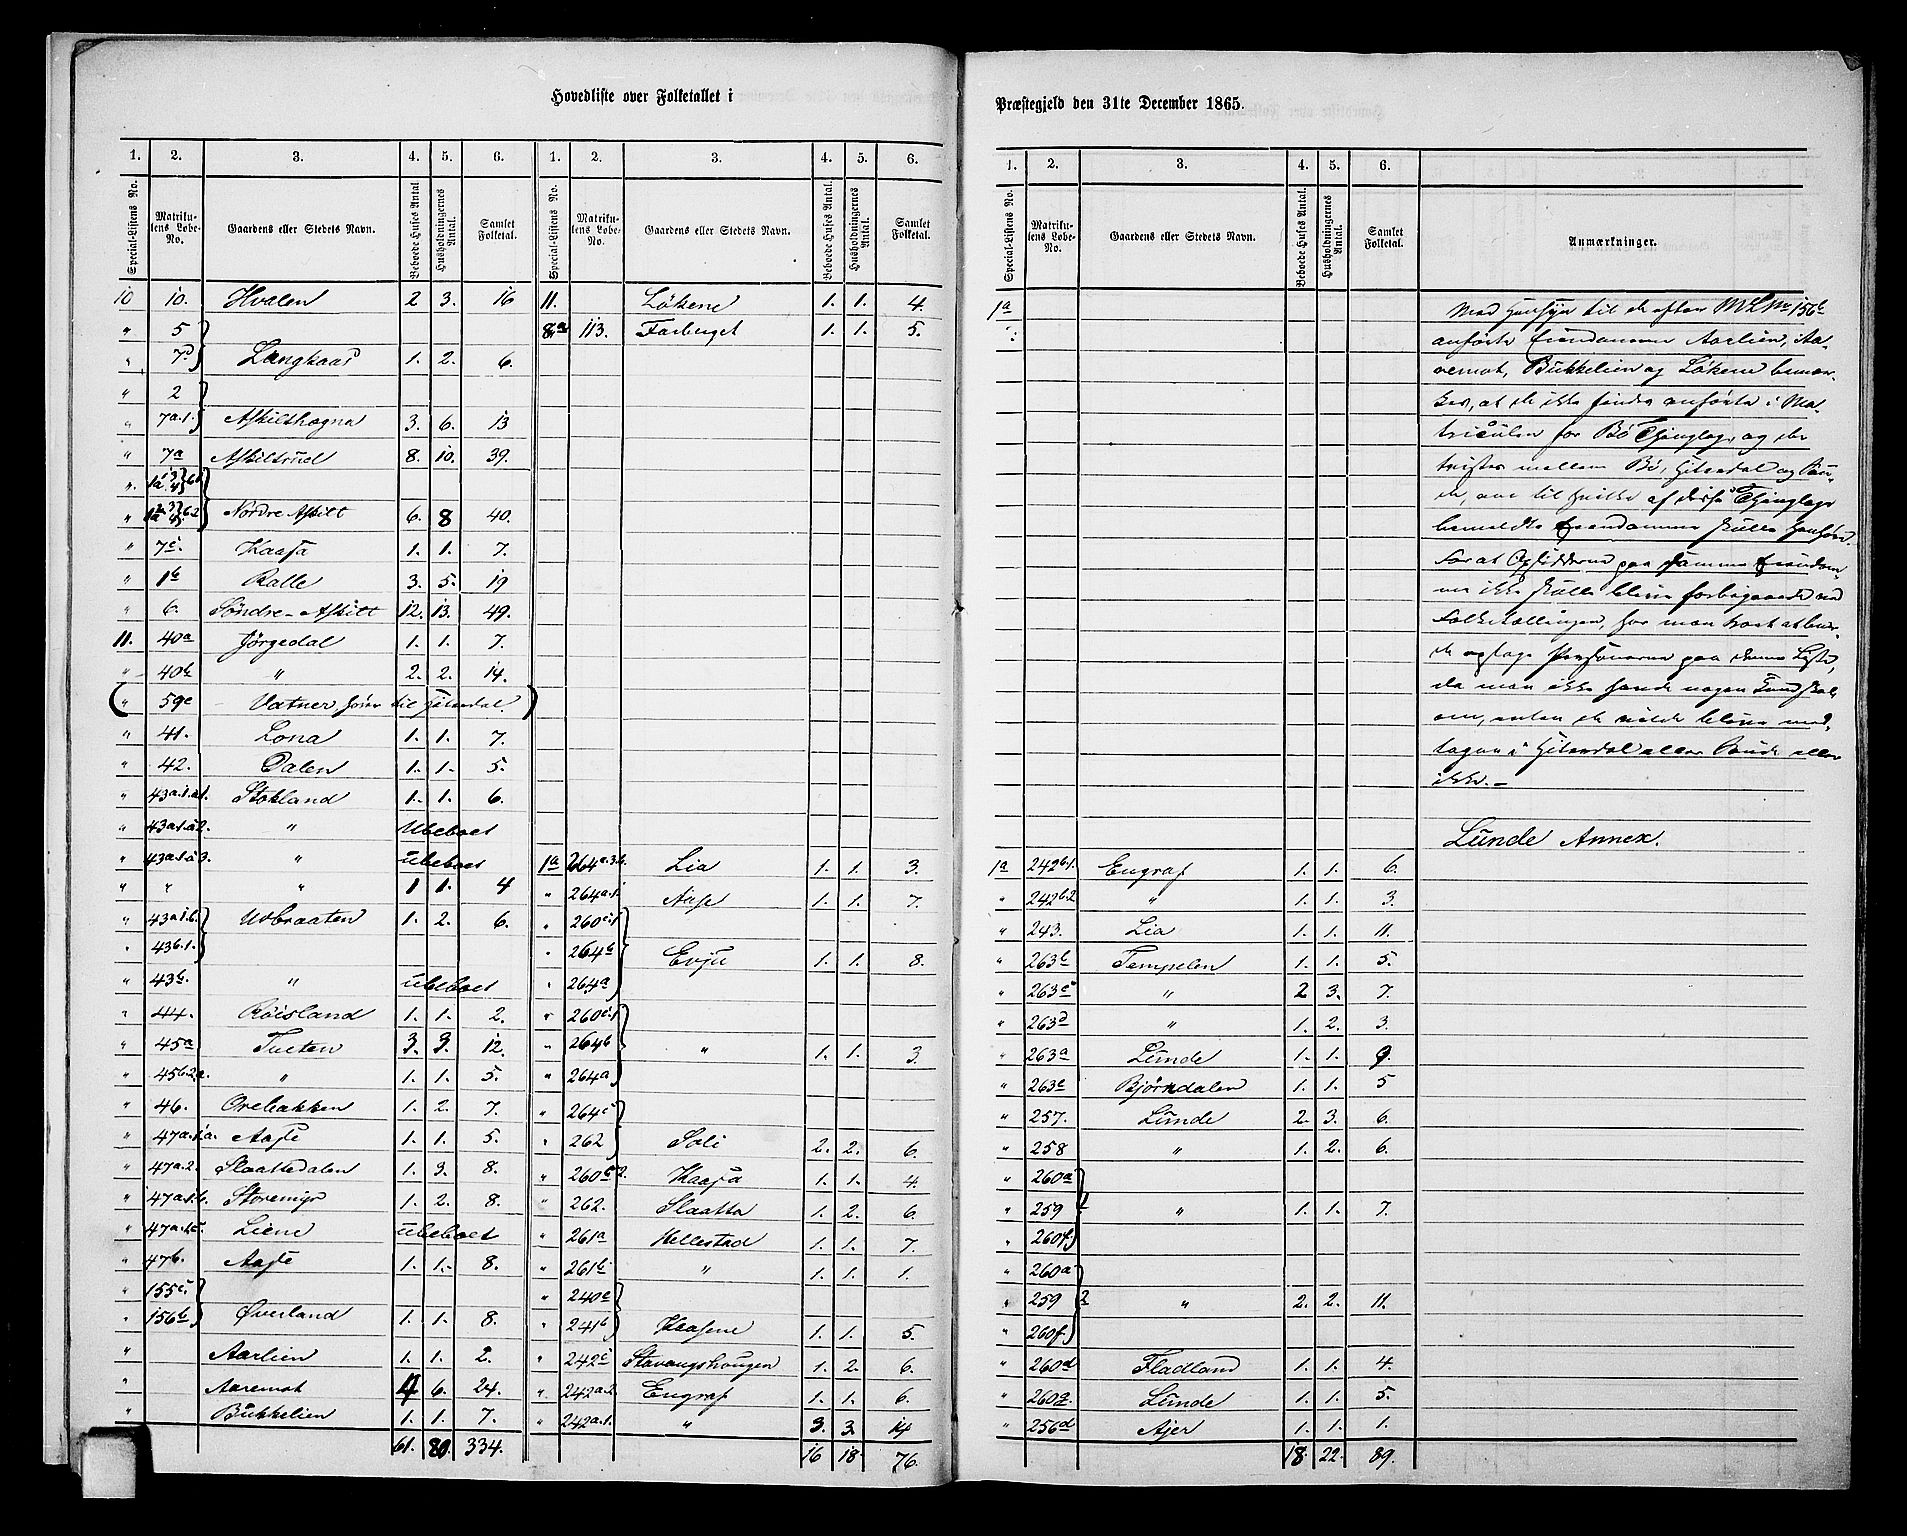 Hovedliste over Folketallet i
1. 2. 3. 4. 5. 6. 1. 2. 3. 4. 5. 6.
Special-Listens No. Matrikulens Løbe-No. Gaardens eller Stedets Navn. Beboede Huses Antal. Husholdningernes Antal. Samlet Folketal. Special-Listens No. Matrikulens Løbe-No. Gaardens eller Stedets Navn. Beboede Huses Antal. Husholdningernes Antal. Samlet Folketal.
10 10. Hvalen 2 3. 16
" 5
" 7d Langkaas 1. 2. 6.
" 2
" 7a.1. Askilthogna 3. 6. 13
" 7a Askiltrud 8. 10. 39.
" Nordre Askilt 6. 8 40.
" 7c. Kaasa 1. 1. 7.
" 1b Ralle 3. 5. 19
" 6. Søndre-Askilt 12. 13. 49.
11. 40a Jørgedal 1. 1. 7.
" 40b " 2. 2. 14.
( " 59c Vatner hører til Hitterdal. )
" 41. Lona 1. 1. 7.
" 42. Dalen 1. 1. 5.
" 43a.1.a1. Stokland 1. 1. 6.
" 43a.1.a2. " Ubeboet
" 43a.1.a3. " ubeboet
" " " 1 1. 4
" 43a.1.b. Udbraaten 1. 2. 6.
" 43b.1.
" 43b. " ubeboet
" 44. Røisland 1. 1. 2.
" 45a Tveten 3. 3. 12.
" 45b.2.a. " 1. 1. 5.
" 46. Orebakken 1. 2. 7.
" 47a.1.a. Aaste 1. 1. 5.
" 47a.2. Slaattedalen 1. 3. 8.
" 47a.1.b. Storemyr 1. 2. 8.
" 47a.1.c. Liene ubeboet
" 47b. Aaste 1. 1. 8.
" 155c.
" 156b Øverland 1. 1. 8.
" Aarlien 1. 1. 2.
" Aaremot 4 6. 24.
" Bukkelien 1. 1. 7.
61. 80. 334.
11. Løkene 1. 1. 4.
8a 113. Farberget 1. 1. 5.
1a 264a.3.b. Lia 1. 1. 3.
" 264a.1. Aase 1. 1. 7.
" 260c.1
" 264b Evju 1. 1. 8.
" 264a
" 260c.1
" 264b " 1. 1. 3.
" 264a
" 264c
" 262 Soli 2. 2. 6.
" 260c2. Kaasa 1. 1. 4.
" 262. Slaatta 1. 2. 6.
" 261a Hellestad 1. 1. 7.
" 261b " 1. 1. 1.
" 240c
" 241b Kaasene 1. 1. 5.
" 242c Stavangshougen 1. 2. 6.
" 242a.2. Engraf 1. 1. 6.
" 242a.1. " 3. 3. 14
16 18. 76.
Præstegjeld den 31te December 1865.
1. 2. 3. 4. 5. 6.
Special-Listens No. Matrikulens Løbe-No. Gaardens eller Stedets Navn. Beboede Huses Antal. Husholdningernes Antal. Samlet Folketal. Anmærkninger.
1a Med Hensyn til de efter MLNo 156b
anførte Eiendomme Aarlien, Aa-
remot, Bukkelien og Løkene bemær-
kes, at de ikke findes anførte i Ma-
trikulen for Bø Thinglag, og der
tvistes mellem Bø, Hiterdal og Sau-
de, om til hvilke af disse Thinglage
bemeldte Eiendomme skulle henhøre.
For at Opsidderne paa samme Eiendom-
me ikke skulle blive forbigaaede ved
Folketællingen, har man
optage Personerne paa denne Liste,
da man ikke havde nogen Kundskab
om, enten de vilde blive med-
tagne i Hiterdal eller Saude eller
ikke.-
Lunde Annex.
1a 242b.1. Engraf 1. 1. 6.
" 242b.2 " 1. 1. 3.
" 243. Lia 1. 1. 11.
" 263b Tempelen 1. 1. 5.
" 263c " 2 3. 7.
" 263d " 1. 2. 3.
" 263a Lunde 1. 1. 9.
" 263e Bjørndalen 1. 1. 5
" 257. Lunde 2. 3. 6.
" 258 " 1. 2. 6.
" 260a
" 259 1 " 1. 1. 7.
" 260f
" 260a
" 259 2 " 2. 2. 11.
" 260f
" 260d Fladland 1. 1. 4.
" 260g Lunde 1. 1. 5.
" 256d Ajer 1. 1. 1.
18. 22. 89.